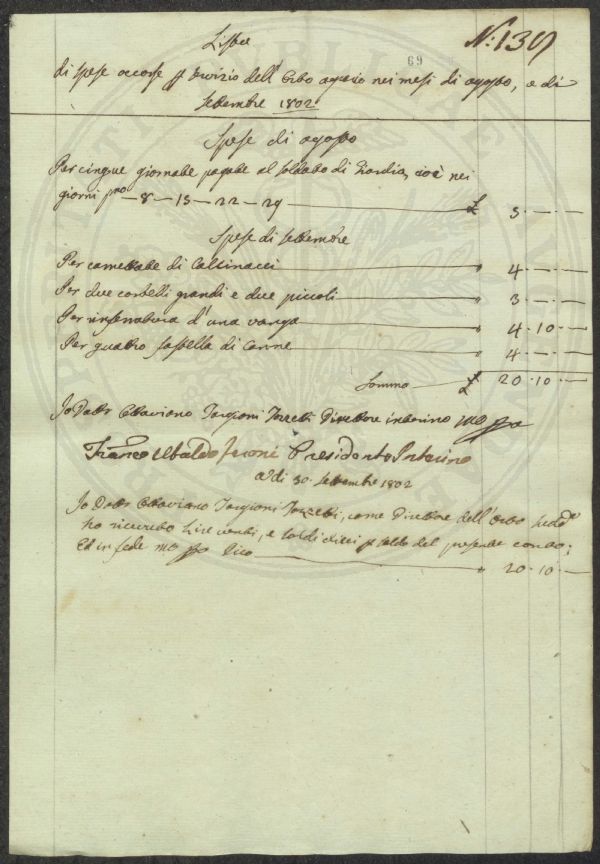 N: 139
69
Lista
di spese occorse p servizio dell'Orto agrario nei mesi di agosto, e di
settembre 1802
Spese di agosto
Per cinque giornate pagate al soldato di Guardia, cioè nei
giorni pmo — 8 — 15 — 22 — 29 — £ 5 . — . —
Spese di settembre
Per carrettate di Calcinacci — " 4 — . —
Per due corbelli grandi e due piccoli — " 3 — . —
Per d'una vanga — " 4 . 10 . —
Per quattro fastella di Canne — " 4 . — . —
Somma — £ 20 . 10 . —
Io Dottr Ottaviano Targioni Tozzetti Direttore interino mo ppa
Franco Ubaldo Feroni Presidente Interino
A di 30. settembre 1802
Io Dottr Ottaviano Targioni Tozzetti, come Direttore dell'Orto sudo
ho ricevuto Lire venti, e soldi dieci p saldo del presente conto;
Ed in fede mo ppa Dico — " 20 . 10 . —